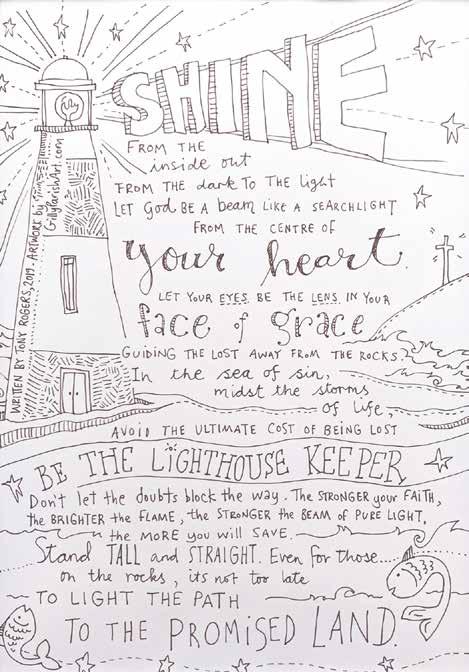 SHINE
FROM THE
inside out
FROM THE dark TO THE light
LET God BE A beam LIKE A SEARCHLIGHT
FROM THE CENTRE OF
your heart.
LET YOUR EYES BE THE LENS IN YOUR
face of grace
GUIDING THE LOST AWAY FROM THE ROCKS.
In the sea of sin,
midst the storms
of life,
AVOID THE ULTIMATE COST OF BEING LOST
BE THE LIGHTHOUSE KEEPER
Don't let the doubts block the way. The STRONGER your FAITH,
the BRIGHTER the FLAME, the STRONGER the BEAM of PURE LIGHT,
the MORE you WILL SAVE.
Stand TALL and STRAIGHT. Even for those....
on the rocks, its not too late
TO LIGHT THE PATH
TO THE PROMISED LAND.
WRITTEN BY TONY ROGERS, 2019. ARTWORK by